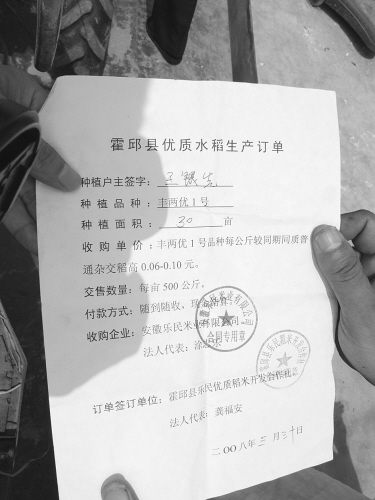 霍邱县优质水稻生产订单
种植户主签字：王银先
种植品种：丰两优1号
种植面积：30亩
收购单价：丰两优1号品种每公斤较同期同质普
通杂交稻高0.06-0.10元。
交售数量：每亩500公斤。
付款方式：随到随收、现
收购企业：安徽乐民米业有限公司
合同专用章
法人代表：涂
订单签订单位：霍邱县乐民优质稻米开发合作社
法人代表：龚福安
二OO八年三月二十日